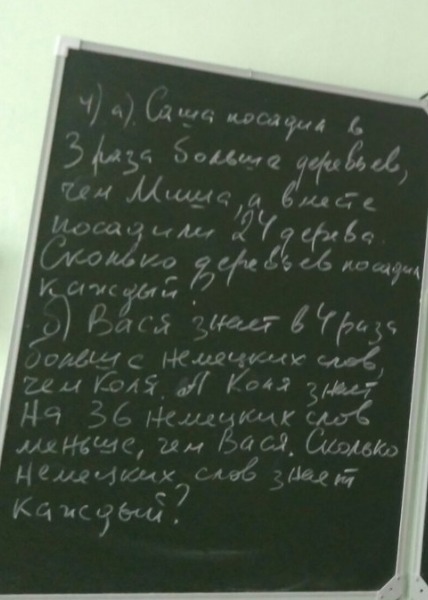 4) а) Саша посадил в
3 раза больше деревьев,
чем Миша, а вместе
посадили 24 дерева.
Сколько деревьев посадил
каждый?
б) Вася знает в 4 раза
больше немецких слов,
чем Коля. А Коля знает
на 36 немецких слов
меньше, чем Вася. Сколько
немецких слов знает
каждый?